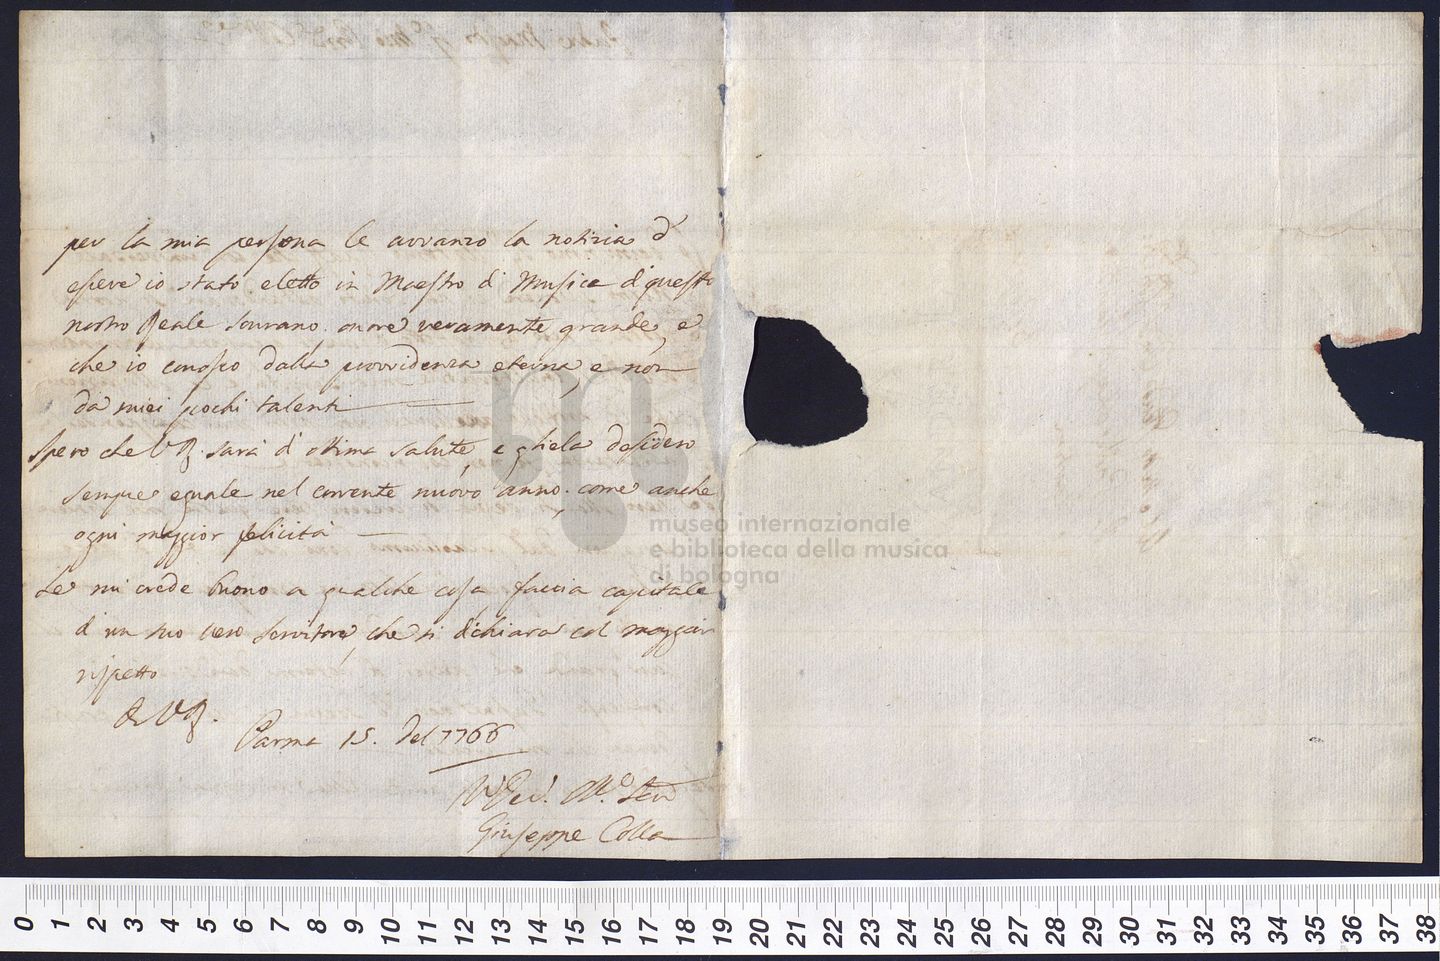 per la mia persona le avvanzo la notizia d'
essere io stato eletto in Maestro di Musica di questo
nostro Reale Sovrano. onore veramente grande, e
che io conosco dalla provvidenza eterna, e non
da miei pochi talenti
Spero che V.R. sarà d'ottima salute, e ghela desidero
sempre eguale nel corrente nuovo anno. come anche
ogni maggior felicità
Se mi crede buono a qualche cosa faccia capitale
di un suo vero servitore, che si dichiara col maggior
rispetto
Di V.R.
Parma 15. del 1766
Giuseppe Colla
museo internazionale
e biblioteca della musica
di bologna
0 1 2 3 4 5 6 7 8 9 10 11 12 13 14 15 16 17 18 19 20 21 22 23 24 25 26 27 28 29 30 31 32 33 34 35 36 37 38